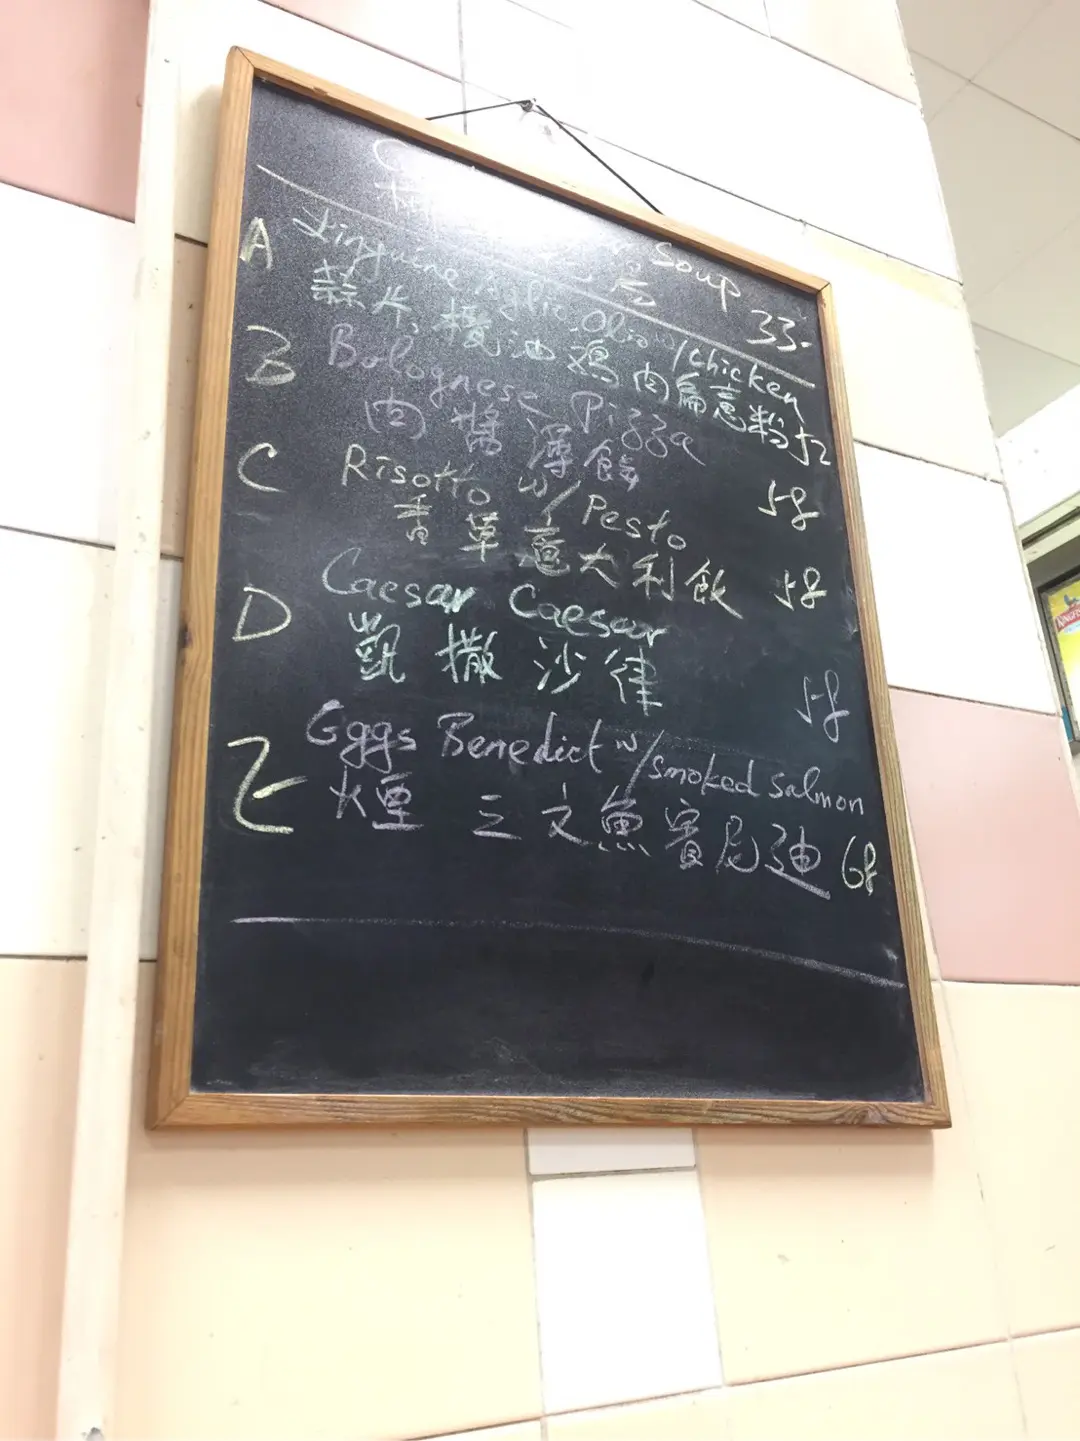 Soup
33.
A Linguine Aglio Olio w/chicken
蒜片,欖油鷄肉扁意粉 52
B Bolognese Pizza
肉醬薄餅 58
C Risotto w/ Pesto
香草意大利飯 58
D Caesar Caesar
凱撒沙律 58
E Eggs Benedict w/smoked salmon
煙三文魚賓尼迪 68